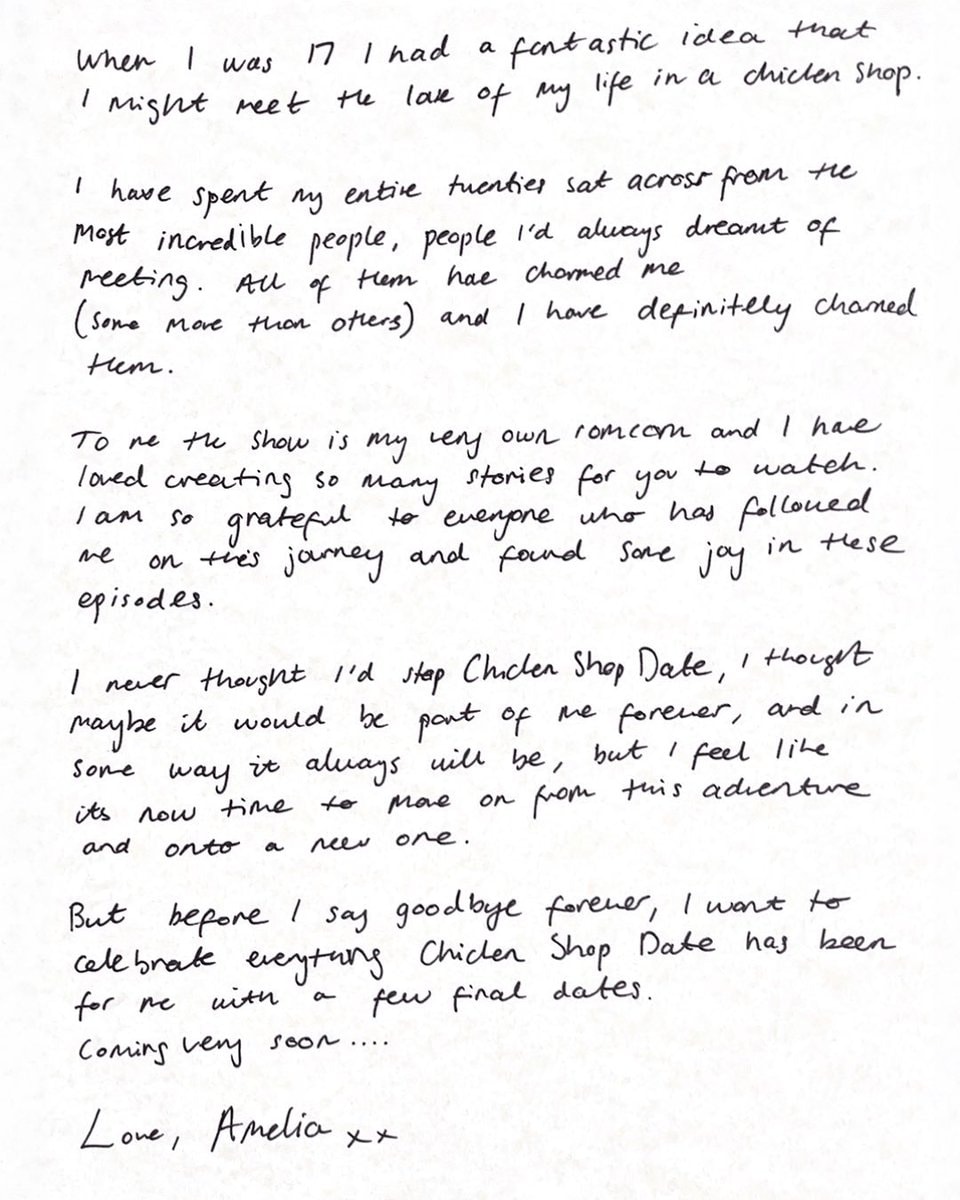 When I was 17 I had a fantastic idea that
I might meet the love of my life in a chicken shop.
I have spent my entire twenties sat across from the
most incredible people, people I'd always dreamt of
meeting. All of them have charmed me
(some more than others) and I have definitely charmed
them.
To me the show is my very own romcom and I have
loved creating so many stories for you to watch.
I am so grateful to everyone who has followed
me on this journey and found some joy in these
episodes.
I never thought I'd stop Chicken Shop Date, I thought
maybe it would be part of me forever, and in
some way it always will be, but I feel like
its now time to move on from this adventure
and onto a new one.
But before I say goodbye forever, I want to
celebrate everything Chicken Shop Date has been
for me with a few final dates.
Coming very soon....
Love, Amelia xx